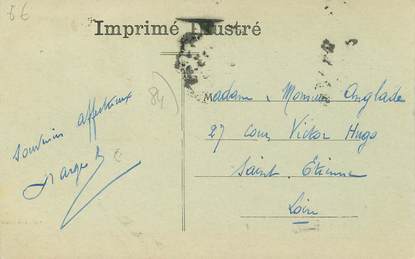 56
Imprimé Illustré
84)
Souvenirs affectueux
Madame, Monsieur Anglade
27 Cours Victor Hugo
Saint. Étienne
Loire